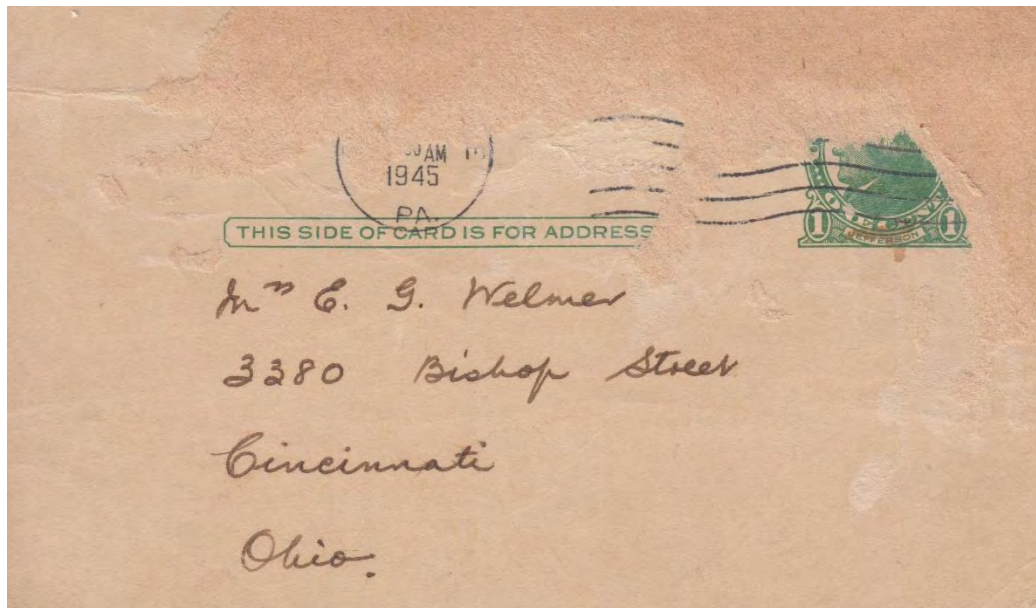 AM
1945
PA.
THIS SIDE OF CARD IS FOR ADDRESS
1 JEFFERSON 1
Mrs E. G. Welmer
3380 Bishop Street
Cincinnati
Ohio.